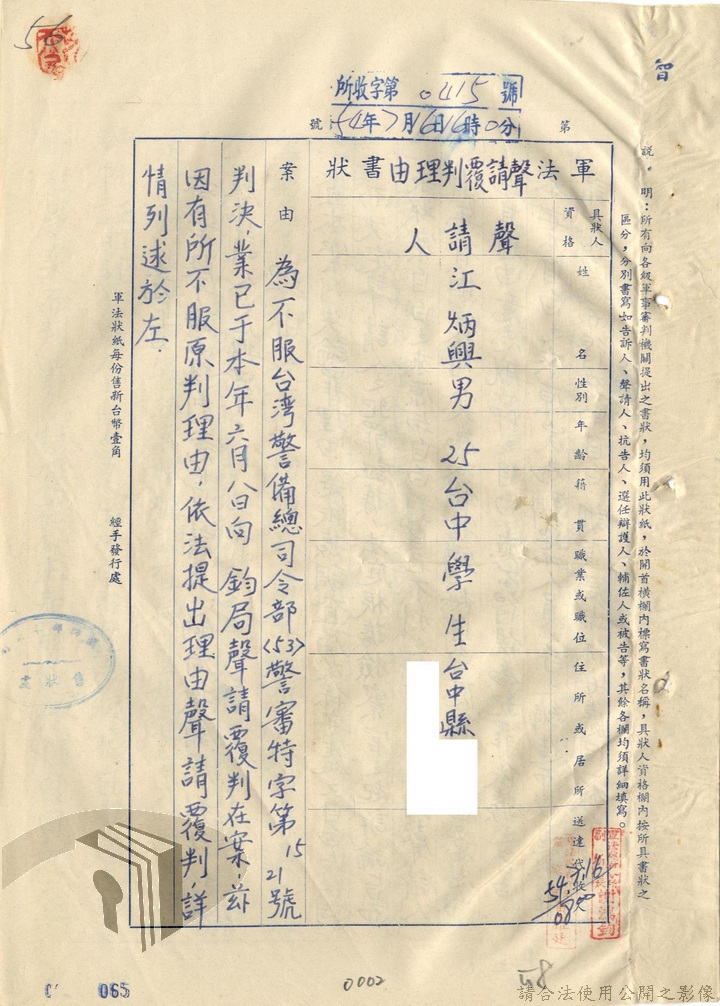 56
智
說明：所有向各級軍事審判機關提出之書狀，均須用此狀紙，於開首橫欄內標寫書狀名稱，具狀人資格欄內按所具書狀之
區分，分別書寫如告訴人、聲請人、抗告人、選任辯護人、輔佐人或被告等，其餘各欄均須詳細填寫。
所收字第0415號
54年7月16日16時0分
第
號
軍法聲請覆判理由書狀
具狀人資格
姓名
性別
年齡
籍貫
職業或職位
住所或居所
送達代收人
聲請人
江炳興
男
25
台中
學生
台中縣
案由
為不服台湾警備總司令部(53)警審特字第1521號
判決，業已于本年六月八日向 鈞局聲請覆判在案，玆
因有所不服原判理由，依法提出理由聲請覆判，詳
情列述於左．
軍法狀紙每份售新台幣壹角
經手發行處
065
0002
58
請合法使用公開之影像